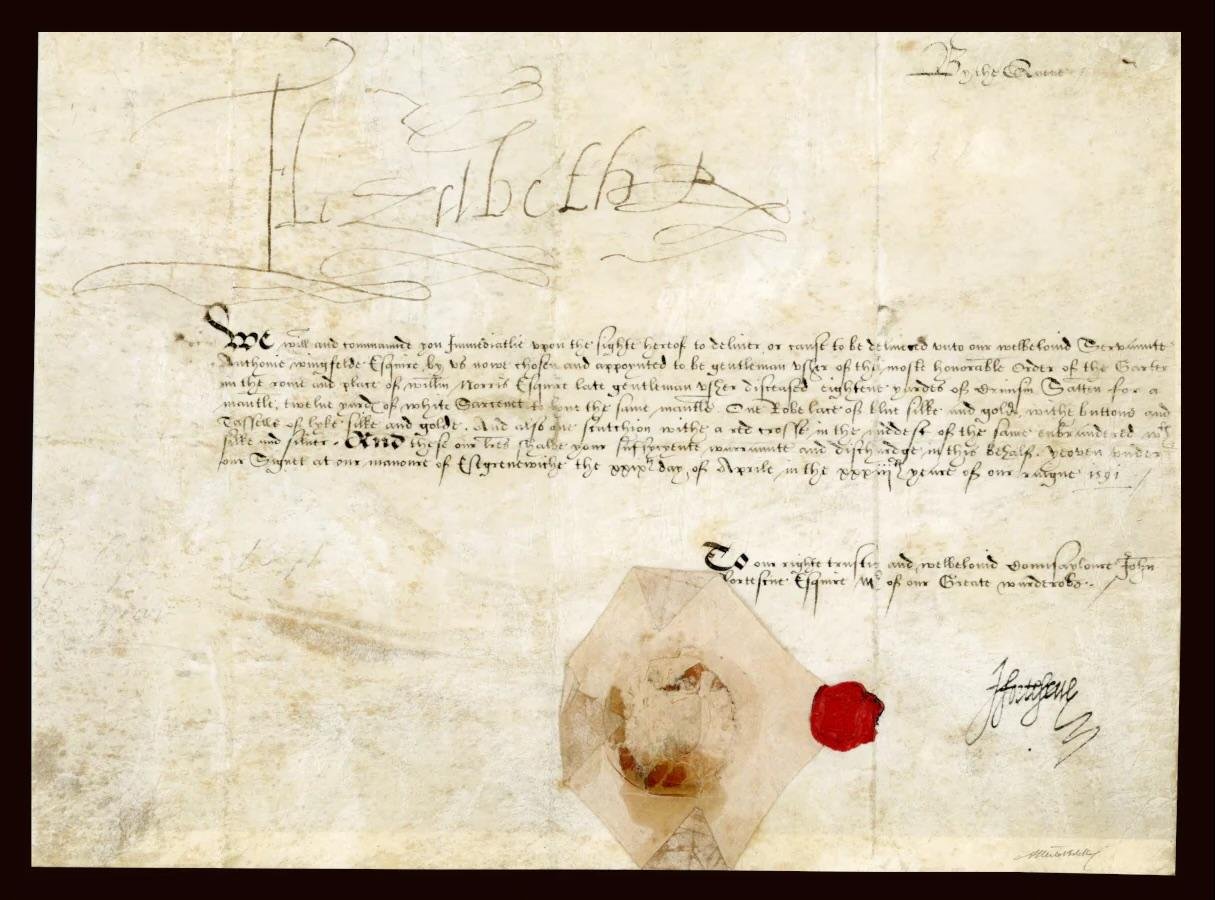 By the Quene
Elizabeth R
We will and commaunde you Immediatlie upon the sighte hereof to deliver or cause to be delivered unto our welbeloved Servaunte
Anthonie wingfelde Esquire by us nowe chosen and appoynted to be gentleman Usher of the moste honorable Order of the Garter
in the rome and place of willm Norris Esquire late gentleman Usher disceased eightene yardes of Crimsin Satten for a
mantle, twelve yardes of white Sarcenet to lyne the same mantle. One Robe lace of blue silke and golde, withe buttons and
Tasselle of lyke silke and golde. And also one scutchion withe a red crosse in the middest of the same enbraudered wth
silke and silver. And these our lres shalbe your sufficyente warraunte and dischardge in this behalf. yeoven under
our Signet at our manoure of Estgrenewiche the xxixth day of Aprile in the xxxiiith yeare of our raigne 1591
To our right trustie and welbelovid Counsaylour John
fortescue Esquire Mr of our Greate warderobe.
Jfortescue